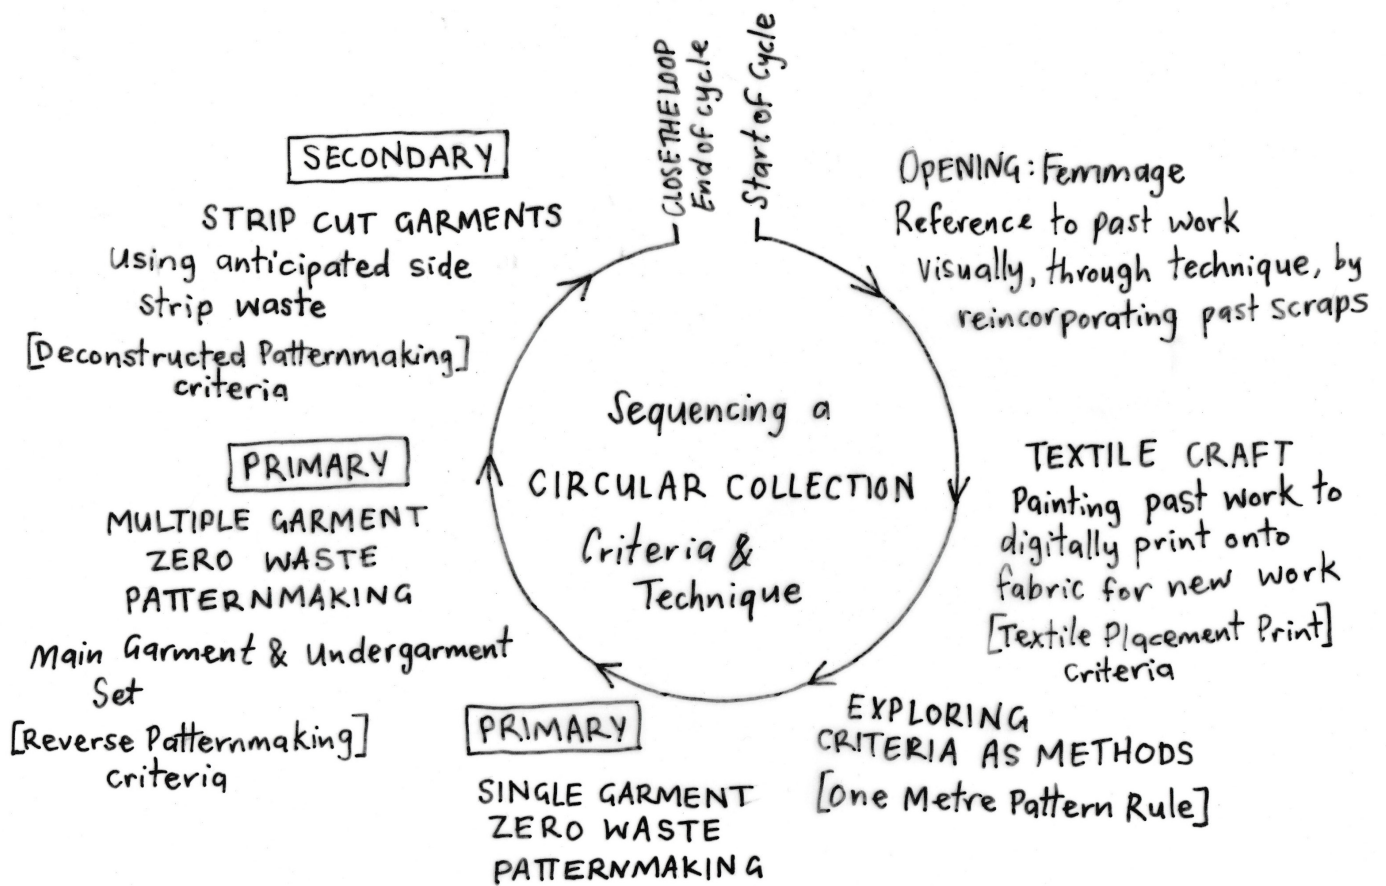 CLOSE THE LOOP
End of cycle
Start of Cycle
OPENING: Femmage
Reference to past work
visually, through technique, by
reincorporating past scraps
TEXTILE CRAFT
Painting past work to
digitally print onto
fabric for new work
[Textile Placement Print]
criteria
EXPLORING
CRITERIA AS METHODS
[One Metre Pattern Rule]
PRIMARY
SINGLE GARMENT
ZERO WASTE
PATTERNMAKING
PRIMARY
MULTIPLE GARMENT
ZERO WASTE
PATTERNMAKING
Main Garment & Undergarment
Set
[Reverse Patternmaking]
criteria
SECONDARY
STRIP CUT GARMENTS
Using anticipated side
strip waste
[Deconstructed Patternmaking]
criteria
Sequencing a
CIRCULAR COLLECTION
Criteria &
Technique